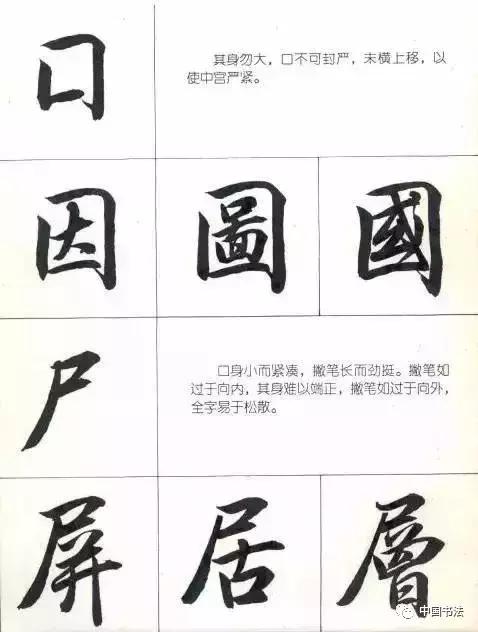 囗
其身勿大，口不可封严，末横上移，以
使中宫严紧。
因 圖 國
尸
口身小而紧凑，撇笔长而劲挺。撇笔如
过于向内，其身难以端正，撇笔如过于向外，
全字易于松散。
屏 居 層
中国书法